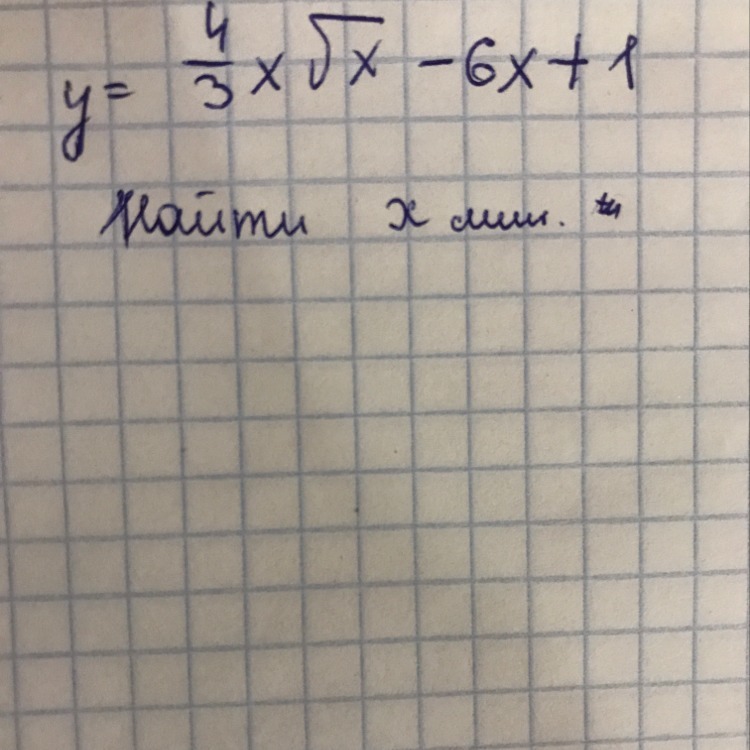 y = 4/3 x √x - 6x + 1
Найти x мин.